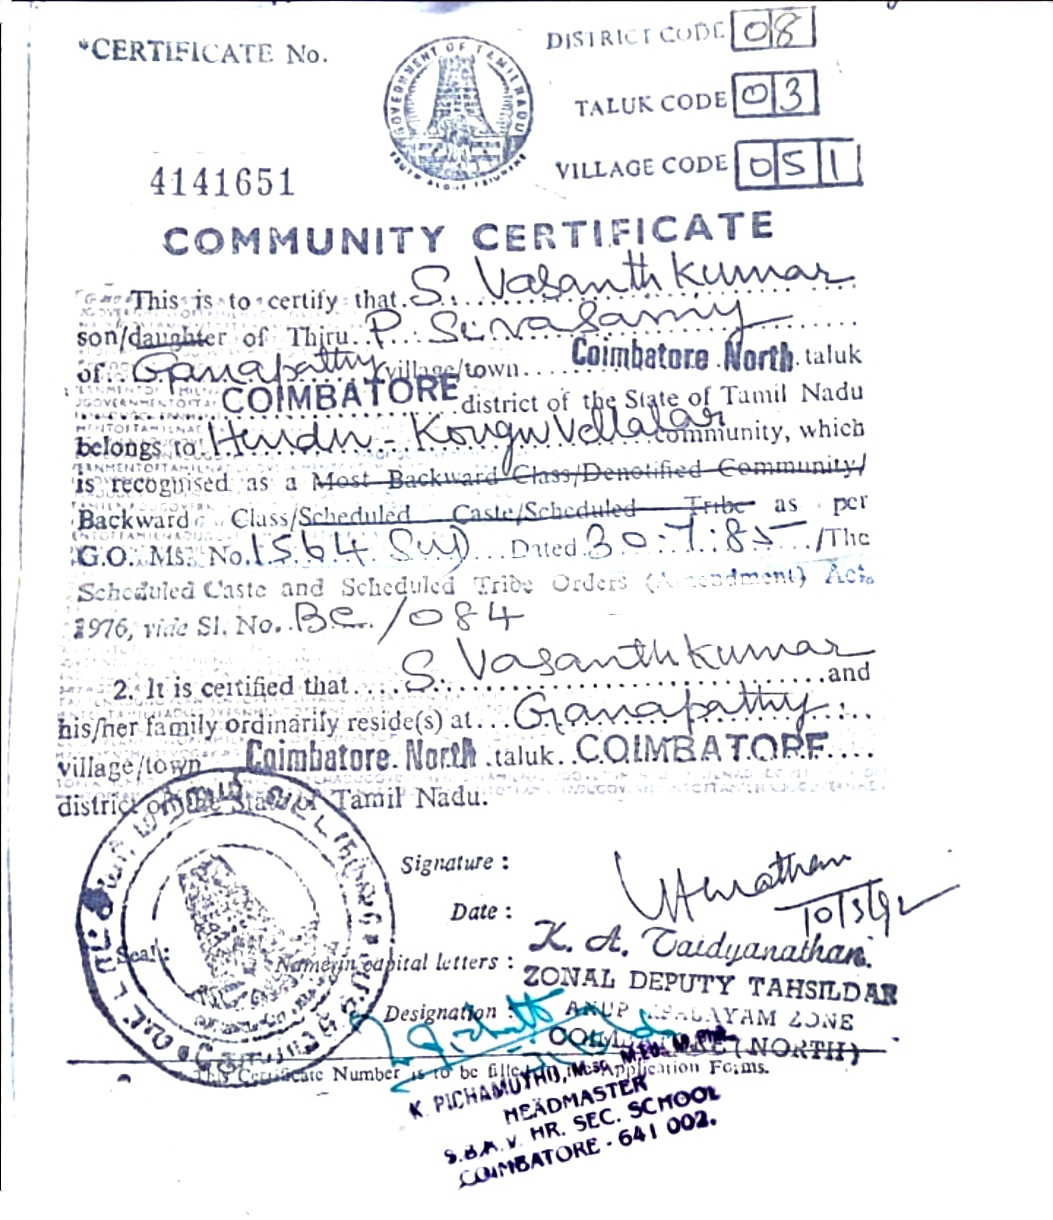 *CERTIFICATE No.
GOVERNMENT OF TAMILNADU
TRUTH ALONE TRIUMPHS
DISTRICT CODE 08
TALUK CODE 03
VILLAGE CODE 051
4141651
COMMUNITY CERTIFICATE
This is to certify that S. Vasanth Kumar
son/daughter of Thiru P. Sivasamy
of Ganapathy village/town Coimbatore North taluk
COIMBATORE district of the State of Tamil Nadu
belongs to Hindu - Kongu Vellalar community, which
is recognised as a Most Backward Class/Denotified Community/
Backward Class/Scheduled Caste/Scheduled Tribe as per
G.O. Ms. No. 1564 SW Dated 30.7.85 /The
Scheduled Caste and Scheduled Tribe Orders (Amendment) Act,
1976, vide Sl. No. BC/084
2. It is certified that S. Vasanth Kumar and
his/her family ordinarily reside(s) at Ganapathy
village/town Coimbatore North taluk COIMBATORE
district of the State of Tamil Nadu.
Signature :
Date : 10/3/92
Seal :
Name in capital letters : K. A. Vaidyanathan.
ZONAL DEPUTY TAHSILDAR
Designation :
ZONE
COIMBATORE (NORTH)
This Certificate Number is to be filled in the Application Forms.
K. PICHAMUTHU, M.Sc, M.Ed., M.Phil.
HEADMASTER
S.B.A.V. HR. SEC. SCHOOL
COIMBATORE - 641 002.